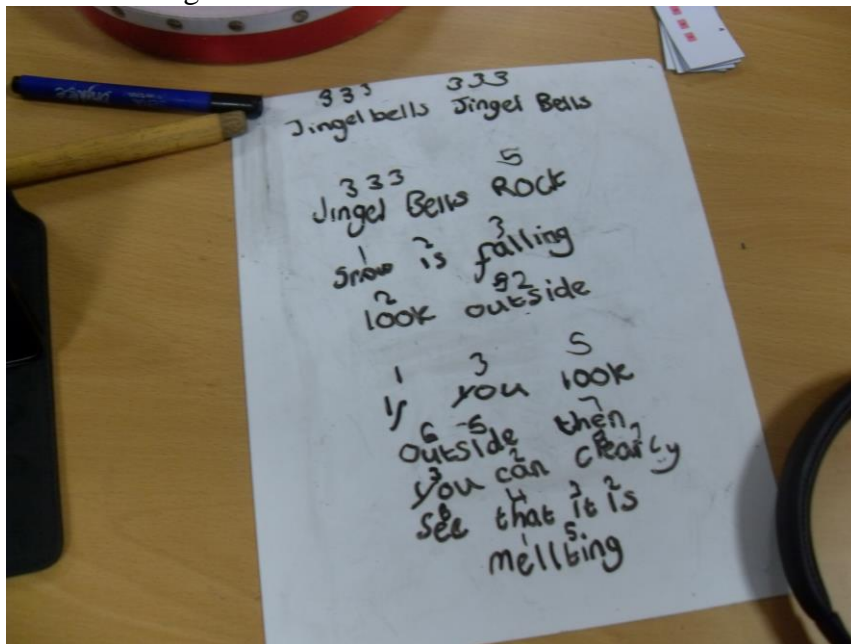 3 3 3 3 3 3
Jingel bells Jingel Bells
3 3 3 5
Jingel Bells ROCK
1 2 3
Snow is falling
2 5 2
look outside
1 3 5
If you look
6 5 7
outside then
3 2 7
you can clearly
8 4 3 2
see that it is
1 5
mellting